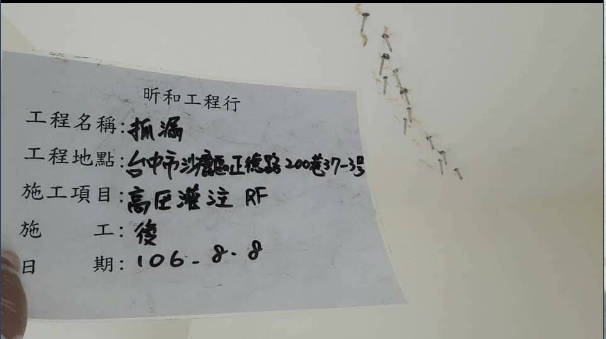 昕和工程行
工程名稱:抓漏
工程地點:台中市沙鹿區正德路200巷37-3号
施工項目:高压灌注 RF
施工:後
日期:106-8-8